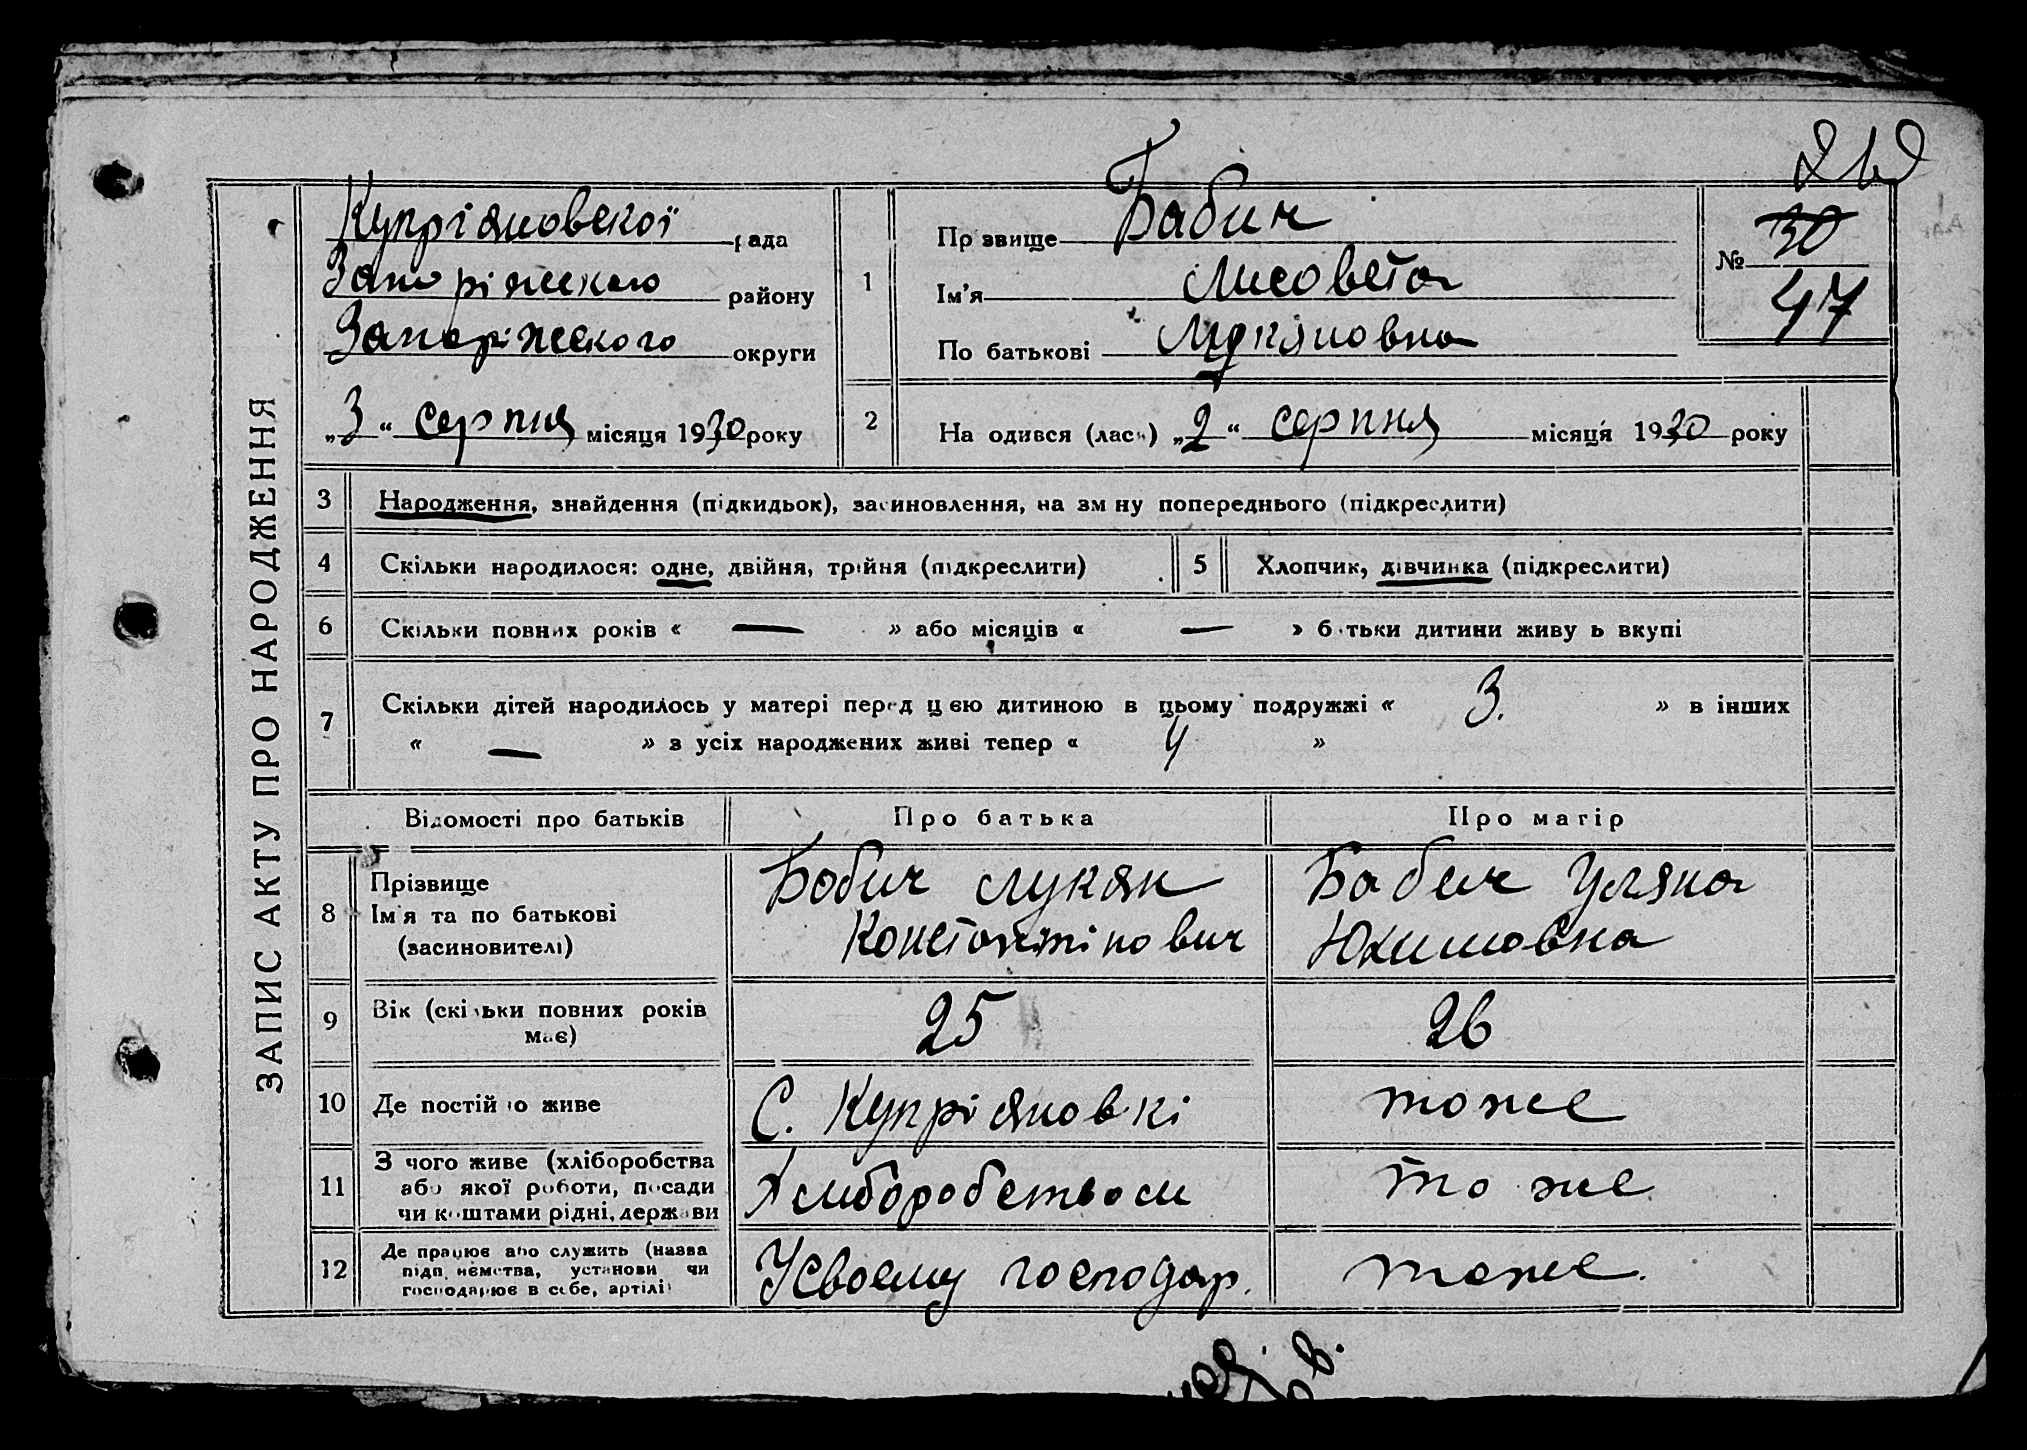 ЗАПИС АКТУ ПРО НАРОДЖЕННЯ
Купріяновскої рада
Запоріжского району
Запоріжского округи
„3“ серпня місяця 1930 року
1
Прзвище Бабич
Ім'я Лисовета
По батькові Лукяновна
№ 30
47
2
На одився (лась) „2“ серпня місяця 1930 року
3 Народження, знайдення (підкидьок), засиновлення, на зм ну попереднього (підкреслити)
4 Скільки народилося: одне, двійня, трійня (підкреслити)
5 Хлопчик, дівчинка (підкреслити)
6 Скільки повних років « — » або місяців « — » б тьки дитини живу ь вкупі
7 Скільки дітей народилось у матері перед цею дитиною в цьому подружжі « 3. » в інших
« — » з усіх народжених живі тепер « 4 »
Відомості про батьків
Про батька
Про матір
8 Прізвище
Ім'я та по батькові
(засиновителі)
Бобич Лукян
Констонтінович
Бабич Уляна
Юхимовна
9 Вік (скільки повних років
має)
25
26
10 Де постійно живе
С. Купріяновкі
тоже
11 З чого живе (хліборобства
або якої роботи, посади
чи коштами рідні, держави
Хлиборобством
то же
12 Де працює або служить (назва
підп ємства, установи чи
господарює в себе, артілі)
Усвоему господар.
тоже.